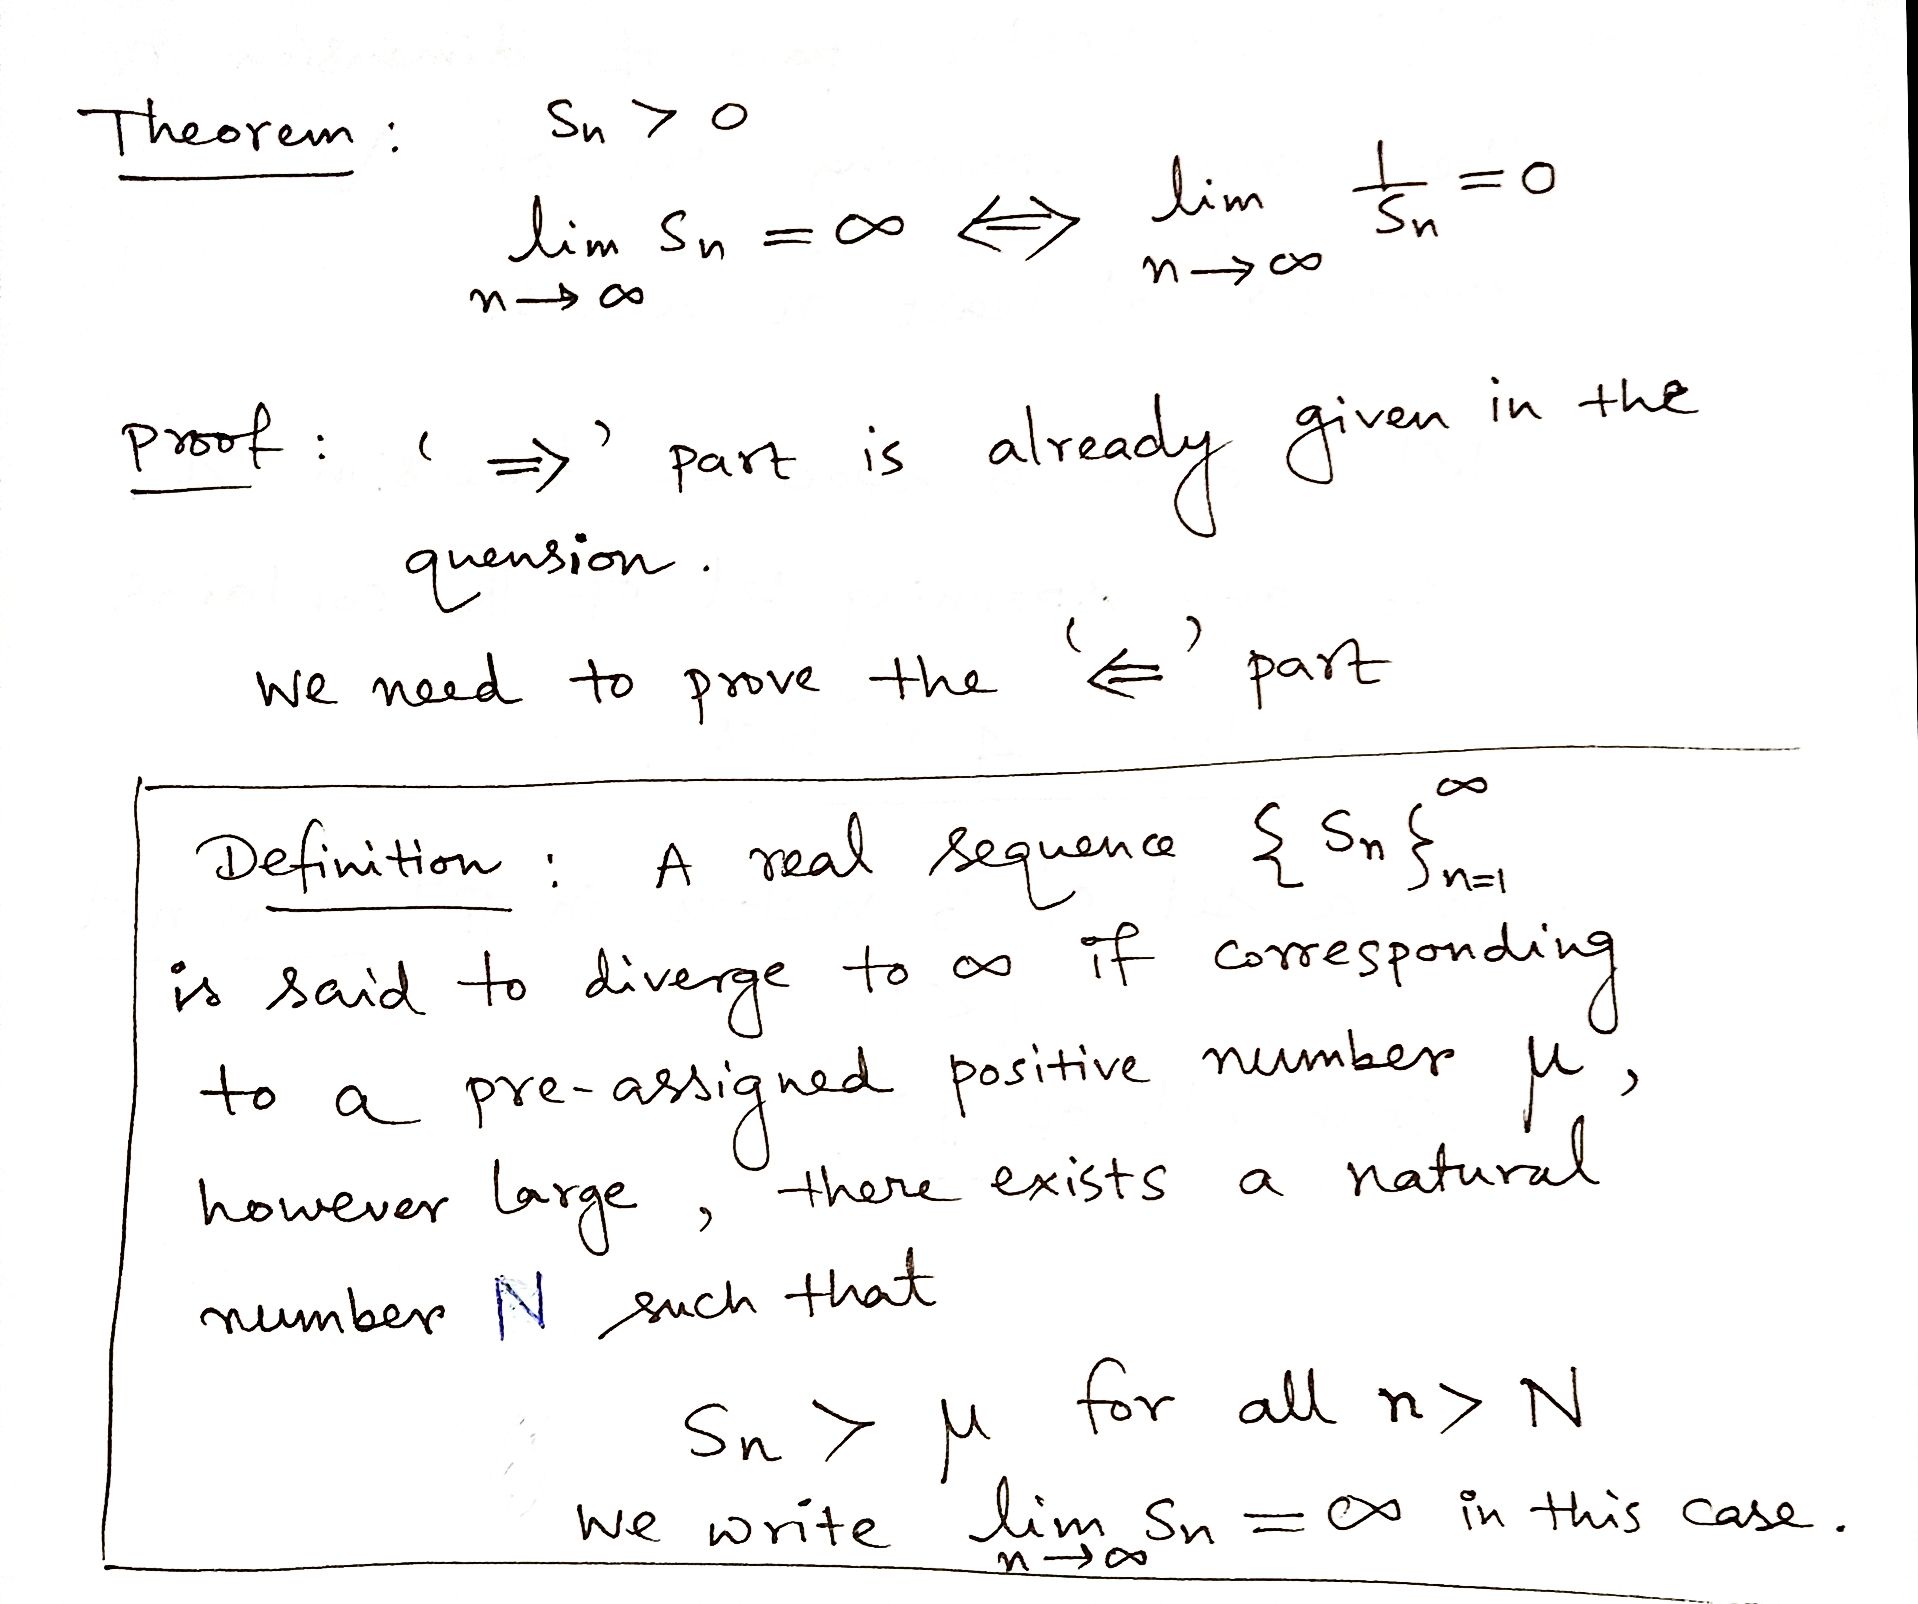 Theorem : Sn > 0
lim Sn = ∞ ⇔ lim 1/Sn = 0
n→∞ n→∞
Proof : ' ⇒ ' part is already given in the
quension .
We need to prove the ' ⇐ ' part
Definition : A real sequence { Sn }∞n=1
is said to diverge to ∞ if corresponding
to a pre-assigned positive number μ ,
however large , there exists a natural
number N such that
Sn > μ for all n > N
We write lim Sn = ∞ in this case .
n→∞